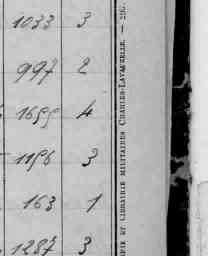 1033 3
997 2
1699 4
1156 3
163 1
1287 3
PIE ET LIBRAIRIE MILITAIRES CHARLES-LAVAUZELLE. — 216.